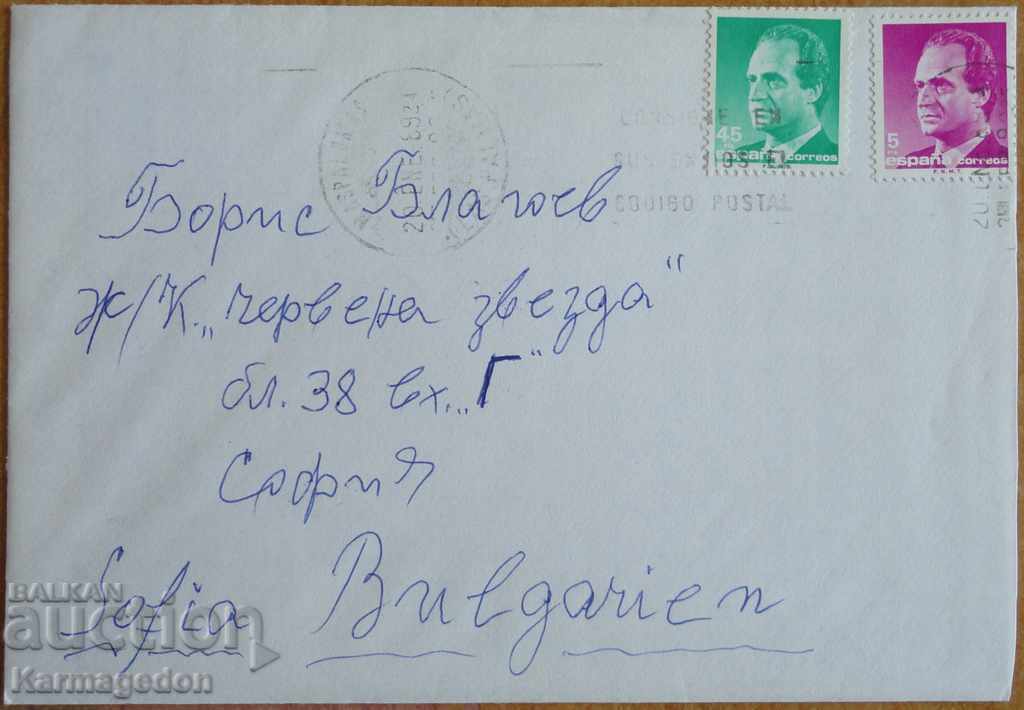 45
PTA
españa correos
F.N.M.T.
5
PTA
españa correos
F.N.M.T.
CONSIGNE EN
SUS ENVIOS EL
CODIGO POSTAL
Борис Благоев
Ж/К „червена звезда“
бл. 38 вх. „Г“
София
Sofia Bulgarien
BALKAN
auction
Karmagedon